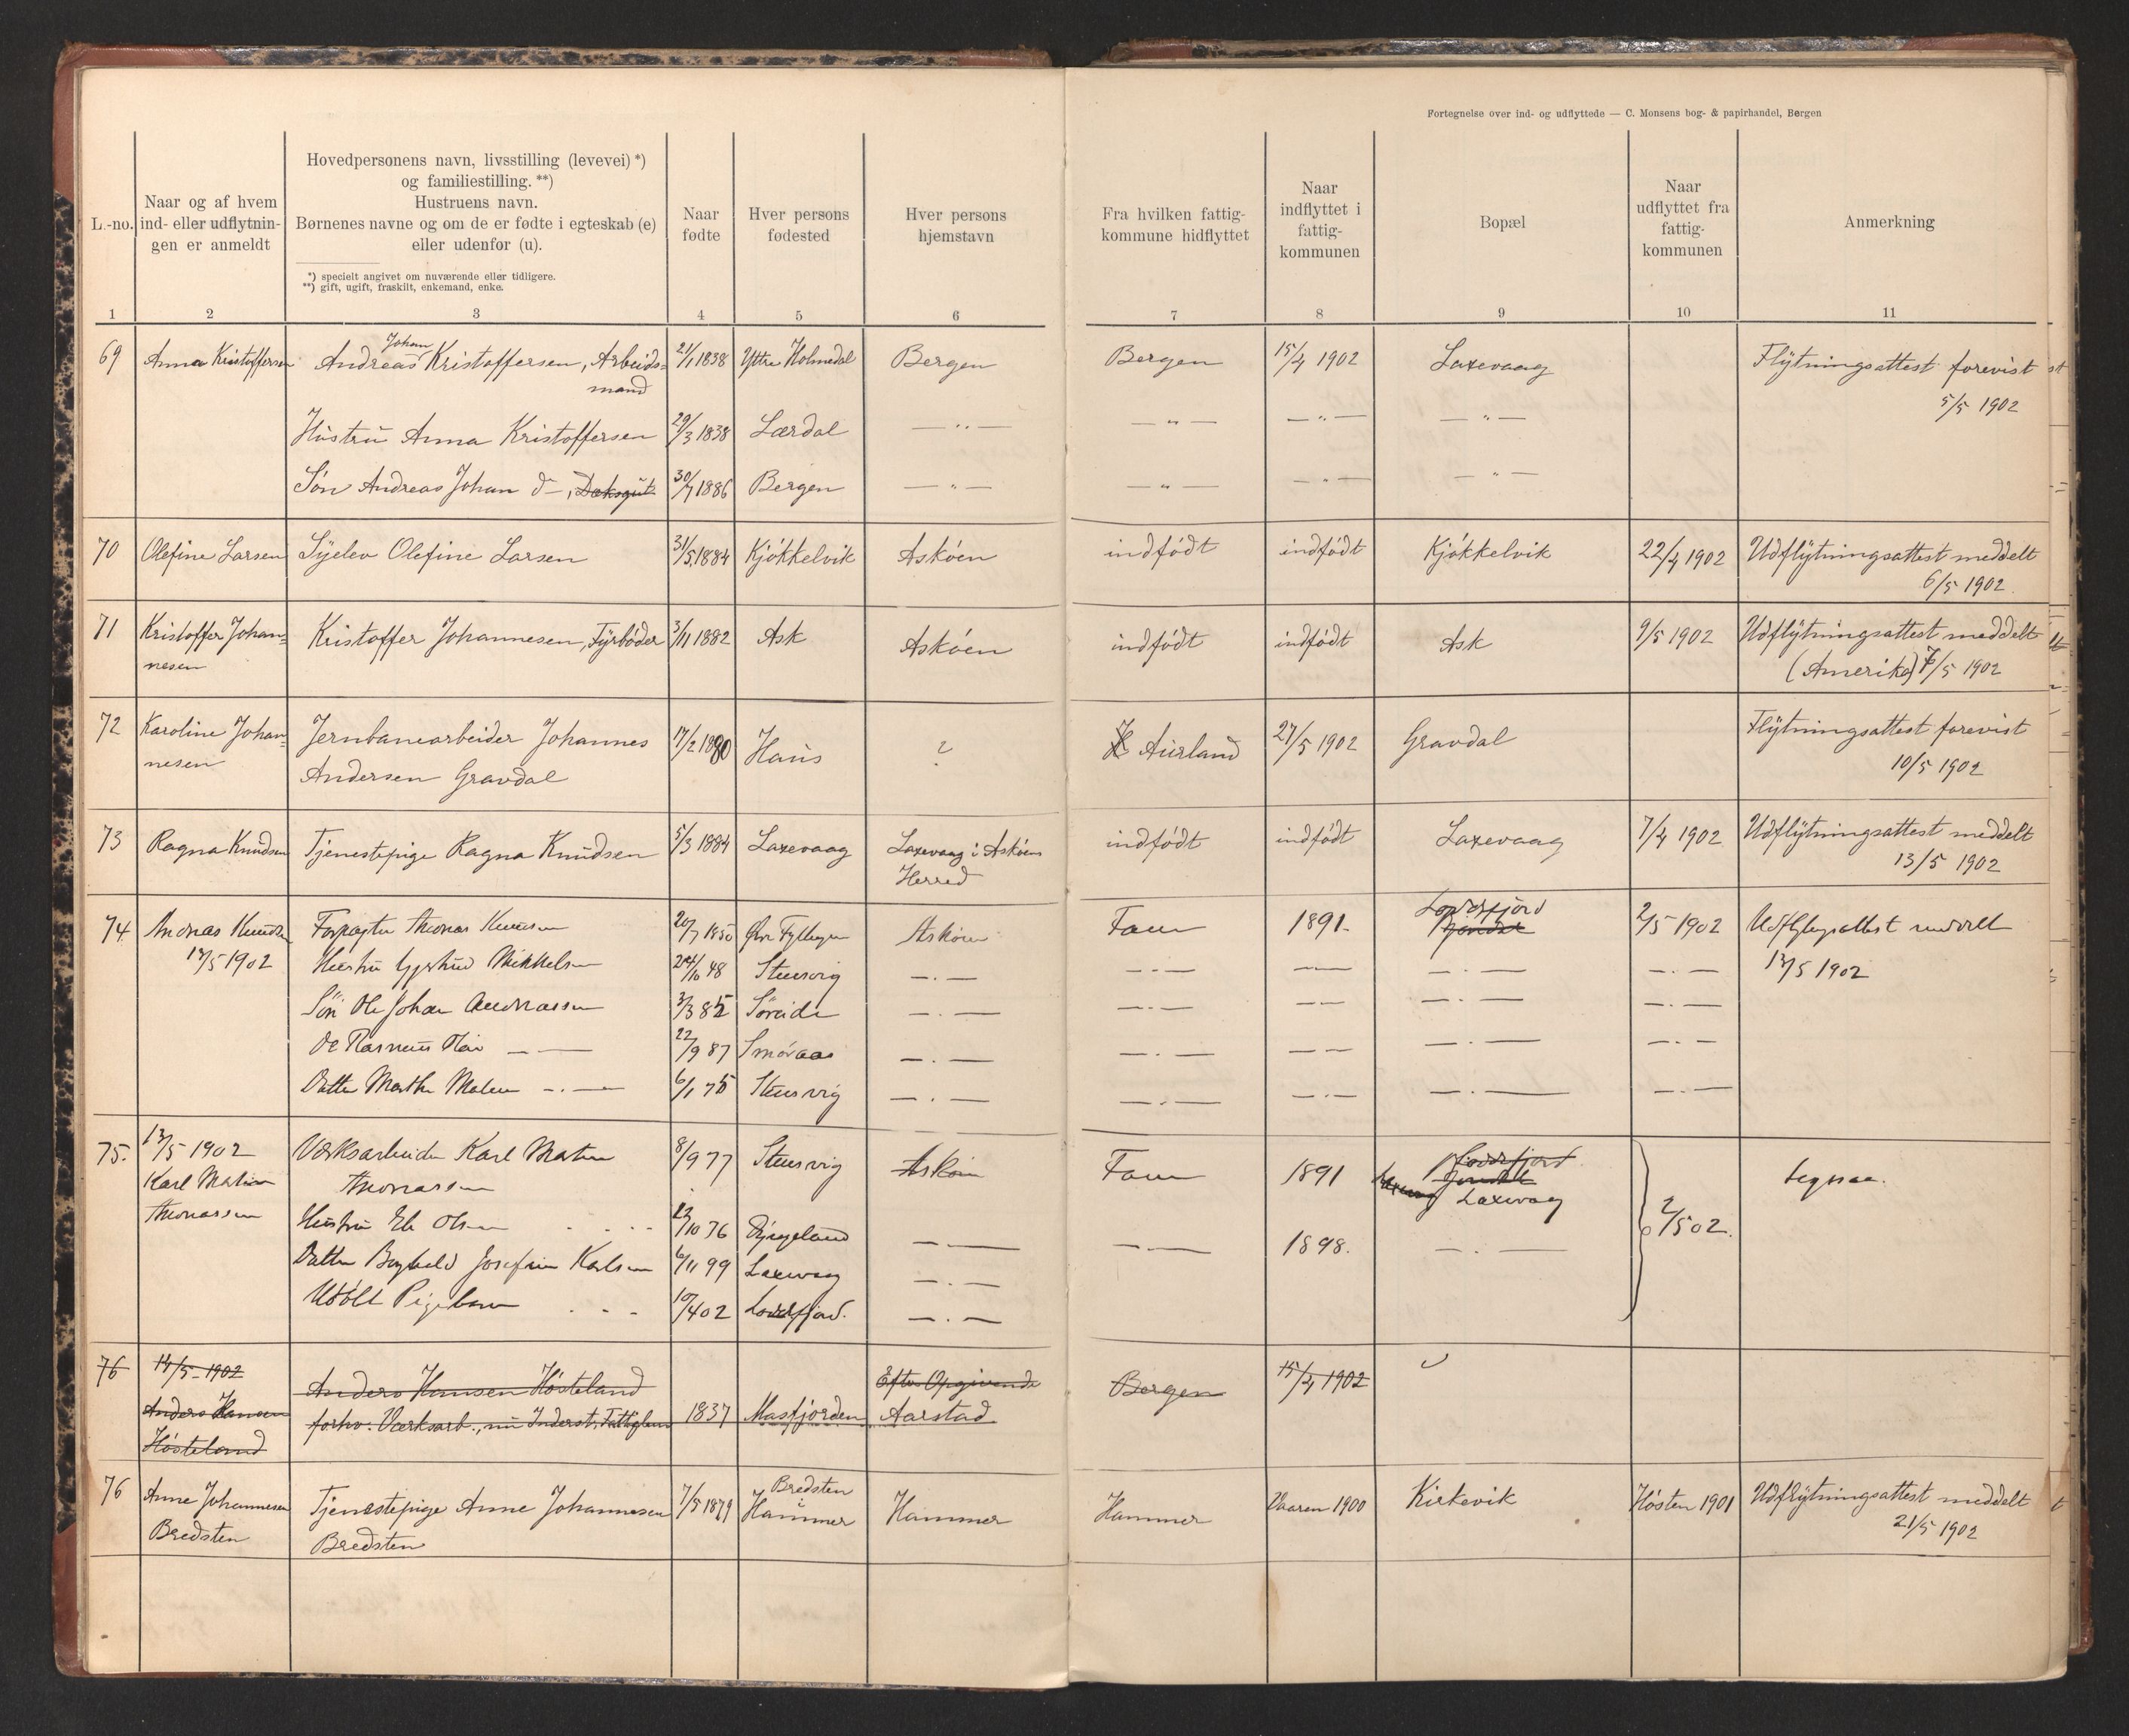 Fortegnelse over ind- og udflyttede — C. Monsens bog- & papirhandel, Bergen
L.-no.
Naar og af hvem
ind- eller udflytnin-
gen er anmeldt
Hovedpersonens navn, livsstilling (levevei) *)
og familiestilling. **)
Hustruens navn.
Børnenes navne og om de er fødte i egteskab (e)
eller udenfor (u).
*) specielt angivet om nuværende eller tidligere.
**) gift, ugift, fraskilt, enkemand, enke.
Naar
fødte
Hver persons
fødested
Hver persons
hjemstavn
Fra hvilken fattig-
kommune hidflyttet
Naar
indflyttet i
fattig-
kommunen
Bopæl
Naar
udflyttet fra
fattig-
kommunen
Anmerkning
1 2 3 4 5 6 7 8 9 10 11
69 Anna Kristoffersen Andreas Johan Kristoffersen, Arbeids= 21/1 1838 Yttre Holmedal Bergen Bergen 15/4 1902 Laxevaag Flytningsattest forevist
mand 5/5 1902
Hustru Anna Kristoffersen 29/3 1838 Lærdal — " — — " — — " — — " —
Søn Andreas Johan d—, Dæksgut 30/7 1886 Bergen — " — — " — — " — — " —
70 Olefine Larsen Syelev Olefine Larsen 31/5 1884 Kjøkkelvik Askøen indfødt indfødt Kjøkkelvik 22/4 1902 Udflytningsattest meddelt
6/5 1902
71 Kristoffer Johan= Kristoffer Johannesen, Fyrbøder 3/11 1882 Ask Askøen indfødt indfødt Ask 9/5 1902 Udflytningsattest meddelt
nesen (Amerika) 7/5 1902
72 Karoline Johan= Jernbanearbeider Johannes 17/2 1880 Haus ? Aurland 27/5 1902 Gravdal Flytningsattest forevist
nesen Andersen Gravdal 10/5 1902
73 Ragna Knudsen Tjenestepige Ragna Knudsen 5/3 1884 Laxevaag Laxevaag i Askøens indfødt indfødt Laxevaag 7/4 1902 Udflytningsattest meddelt
Herred 13/5 1902
74 Thomas Knudsen Forpagter Thomas Knudsen 20/7 1850 Øvre Fyllingen Askøen Fane 1891. Loddefjord 2/5 1902 Udflytngsattest meddelt
13/5 1902 Hustru Gjertrud Mikkelsen 24/10 48 Steensvig — . — — . — — — — . — — . — 13/5 1902
Søn Ole Johan Thomassen 3/3 85 Søreide — . — — . — — — — . — — . —
Do Rasmus — — 22/9 87 Smøraas — . — — . — — — — . — — . —
Datter Marthe Malene — . — 6/1 75 Steensvig — . — — . — — . — — . — — . —
75. 13/5 1902 Værksarbeider Karl Martin 8/9 77 Steensvig Askøen Fane 1891 Loddefjord
Karl Martin Thomassen Laxevaag Ligesaa.
Thomassen Hustru Eli Olsen 10 76 — . — — . — 1898. — . — 2/5 02.
Datter Borghild Josefine Karlsen 6/11 99 Laxevaag — . —
Udøbt Pigebarn 10/4 02 Loddefjord. — . —
76 14/5 1902 Anders Hansen Høsteland Efter Opgivende Bergen 15/4 1902
Anders Hansen forhv. Værksarb., nu Inderst, Fattiglem 1837 Masfjorden Aarstad
Høsteland
76 Anne Johannesen Tjenestepige Anne Johannesen 7/5 1879 Bredsten i Hammer Hammer Hammer Vaaren 1900 Kirkevik Høsten 1901 Udflytningsattest meddelt
Bredsten Bredsten 21/5 1902